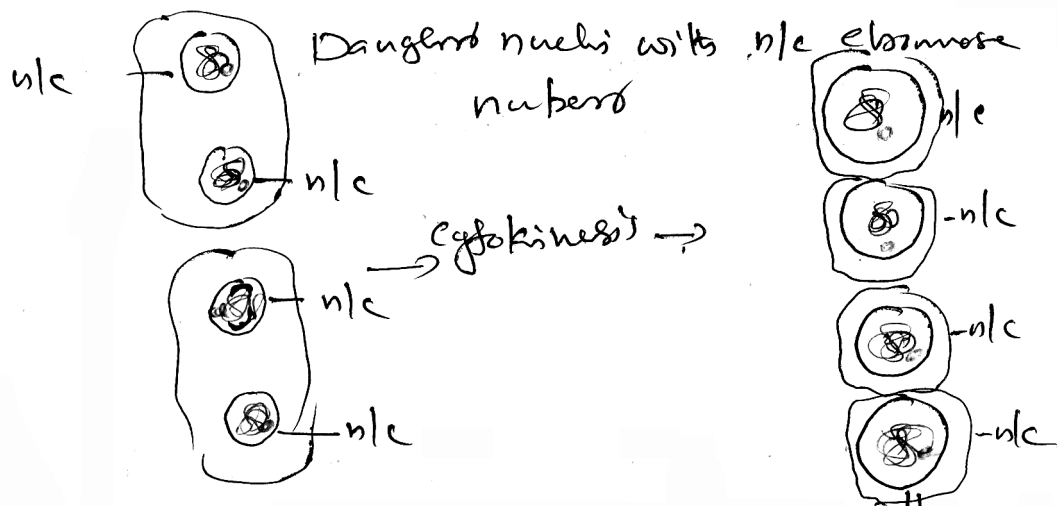 Daughter nuclei with n/c chromosome
number
n/c
n/c
n/c
n/c
→ cytokinesis →
n/c
n/c
-n/c
-n/c
-n/c